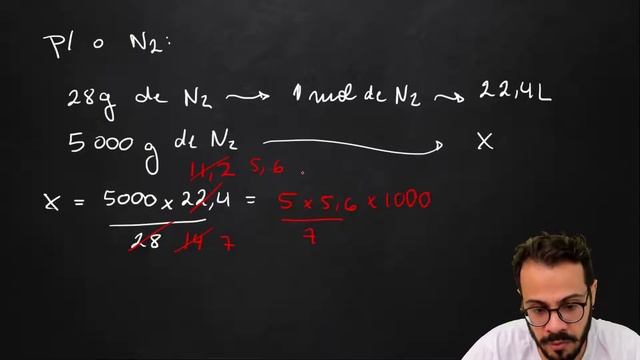 p/ o N2:
28g de N2 → 1 mol de N2 → 22,4L
5000g de N2 → X
11,2 5,6
X = 5000 x 22,4 = 5 x 5,6 x 1000
28 14 7 7